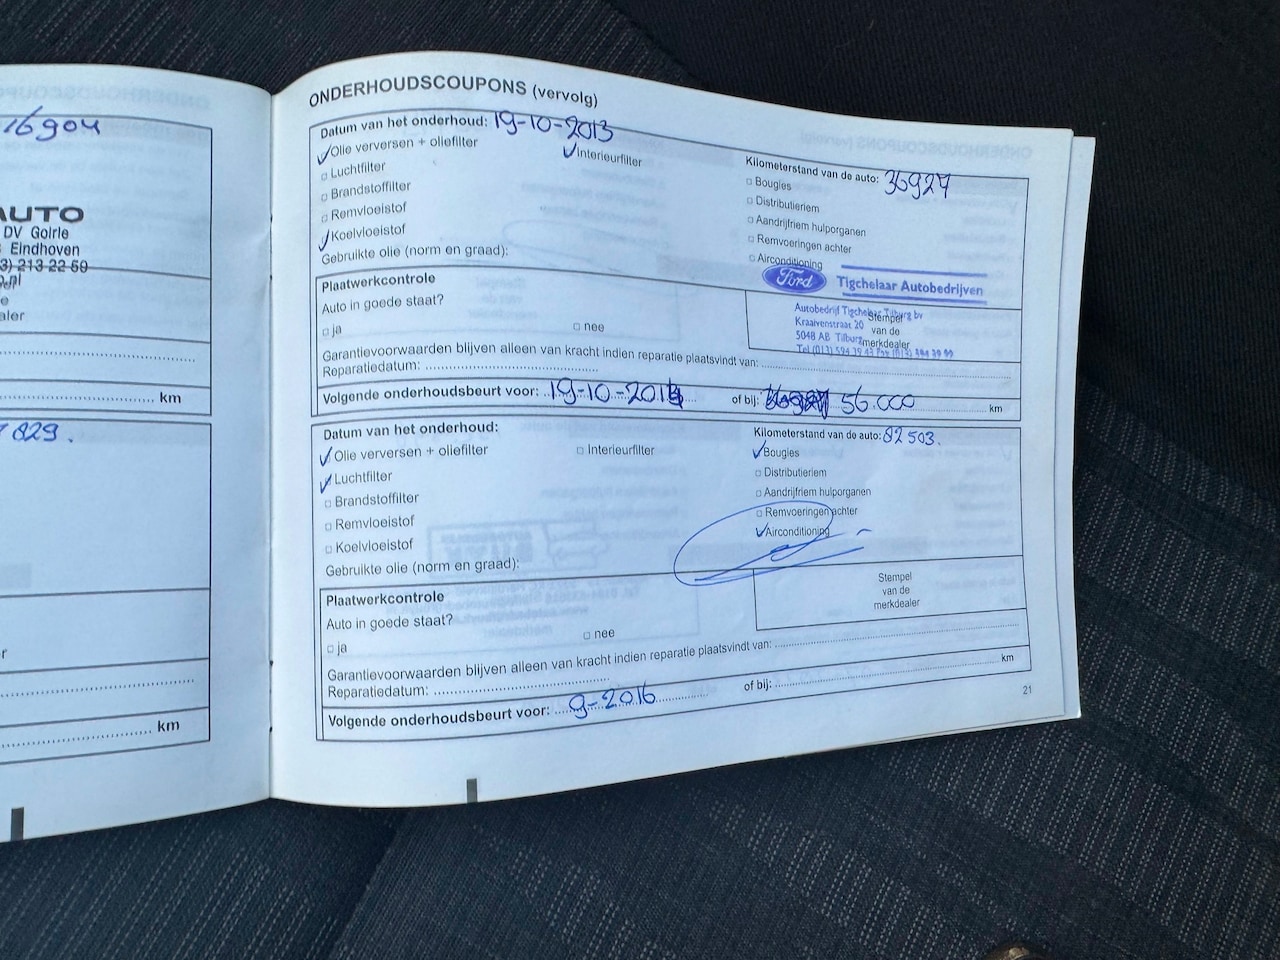 16904
AUTO
DV Goirle
Eindhoven
3) 213 22 59
km
829.
km
ONDERHOUDSCOUPONS (vervolg)
Datum van het onderhoud: 19-10-2013
Olie verversen + oliefilter
Interieurfilter
Luchtfilter
Brandstoffilter
Remvloeistof
Koelvloeistof
Gebruikte olie (norm en graad):
Kilometerstand van de auto: 36927
Bougies
Distributieriem
Aandrijfriem hulporganen
Remvoeringen achter
Airconditioning
Ford Tigchelaar Autobedrijven
Autobedrijf Tigchelaar Tilburg bv
Kraaivenstraat 20
5048 AB Tilburg
Stempel
van de
merkdealer
Plaatwerkcontrole
Auto in goede staat?
ja
nee
Garantievoorwaarden blijven alleen van kracht indien reparatie plaatsvindt van:
Reparatiedatum:
Volgende onderhoudsbeurt voor: 19-10-2014 of bij: 56.000 km
Datum van het onderhoud:
Olie verversen + oliefilter
Interieurfilter
Luchtfilter
Brandstoffilter
Remvloeistof
Koelvloeistof
Gebruikte olie (norm en graad):
Kilometerstand van de auto: 82503.
Bougies
Distributieriem
Aandrijfriem hulporganen
Remvoeringen achter
Airconditioning
Plaatwerkcontrole
Auto in goede staat?
ja
nee
Stempel
van de
merkdealer
Garantievoorwaarden blijven alleen van kracht indien reparatie plaatsvindt van:
Reparatiedatum:
Volgende onderhoudsbeurt voor: 9-2016 of bij: km
21